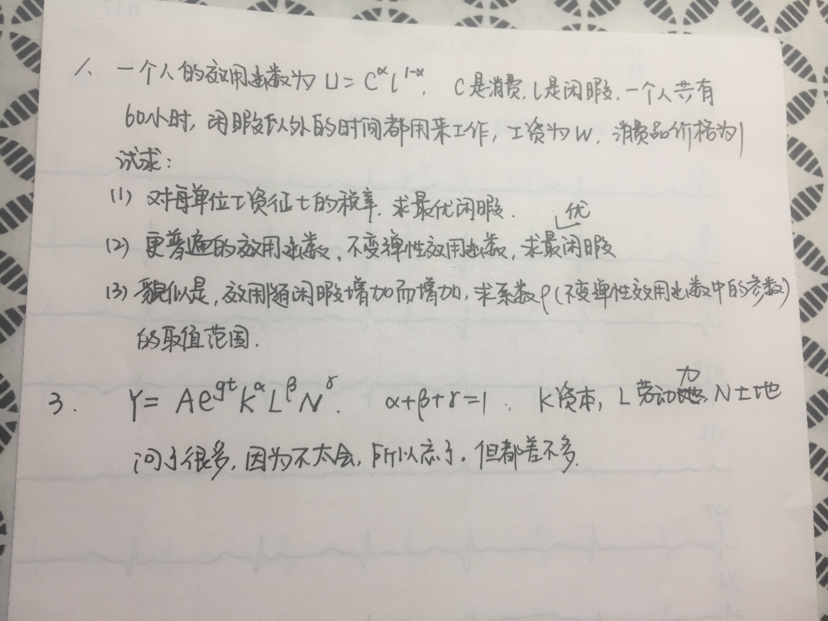 1、一个人的效用函数为 U = C^α l^{1-α}, C是消费, l是闲暇, 一个人共有
60小时, 闲暇以外的时间都用来工作, 工资为W, 消费品价格为1
试求:
(1) 对每单位工资征t的税率, 求最优闲暇.
(2) 更普遍的效用函数, 不变弹性效用函数, 求最优闲暇
(3) 貌似是, 效用随闲暇增加而增加, 求系数ρ(不变弹性效用函数中的参数)
的取值范围.
3. Y = Ae^{gt} K^α L^β N^γ. α+β+γ=1, K资本, L劳动力, N土地
问了很多, 因为不太会, 所以忘了, 但都差不多.